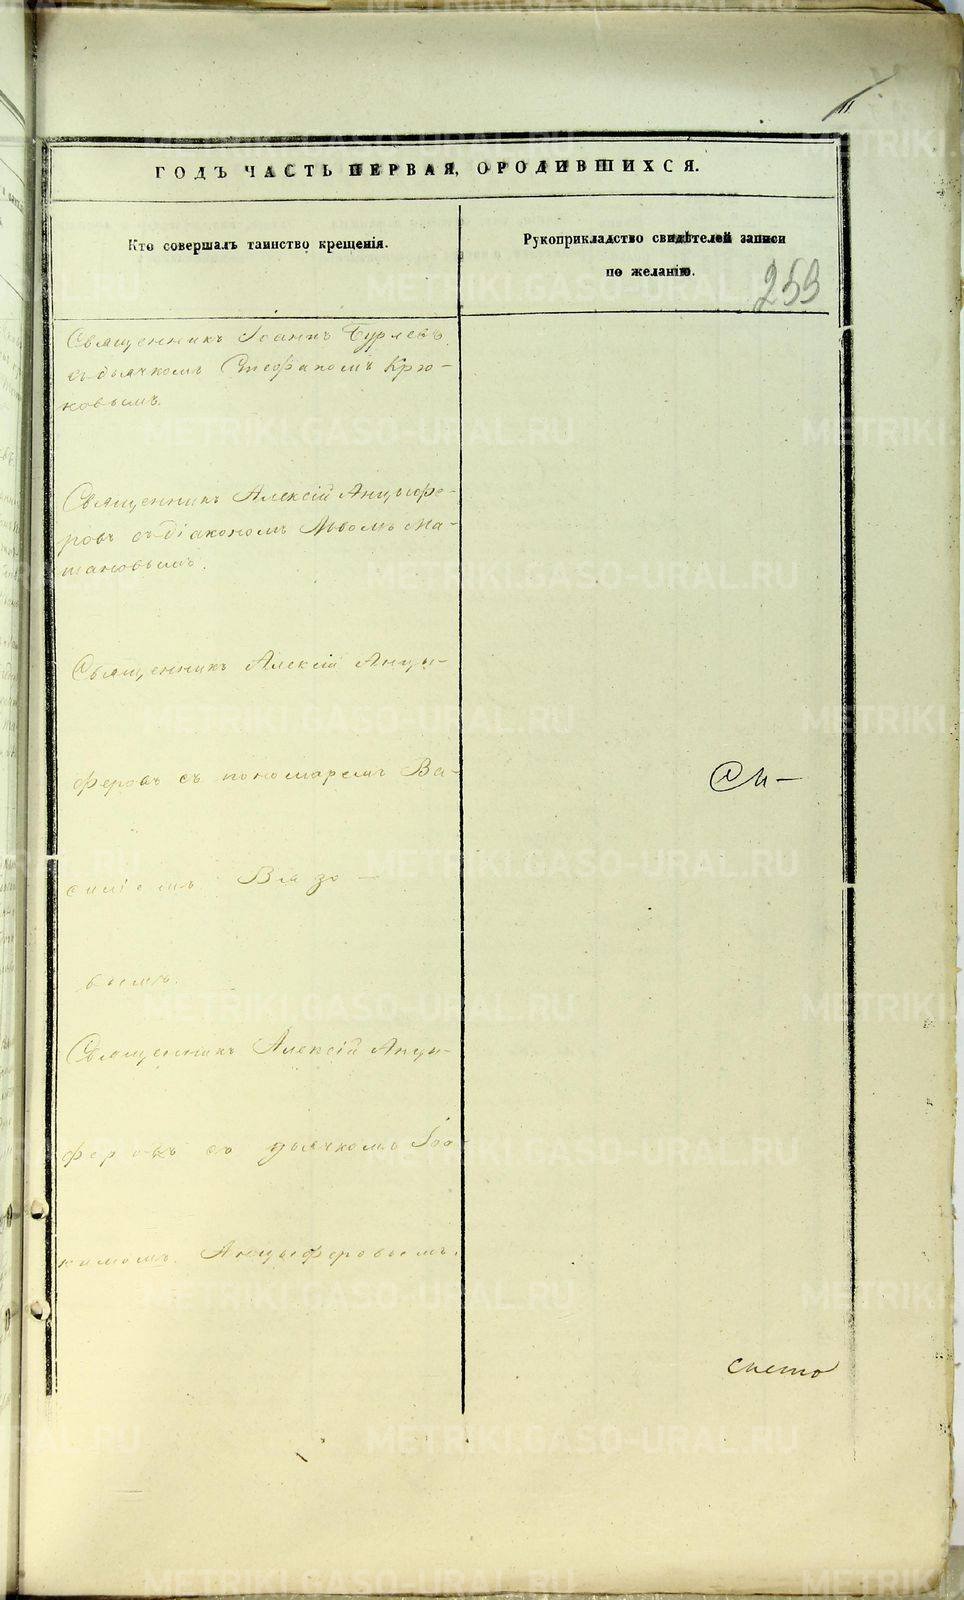 11
ГОДЪ ЧАСТЬ ПЕРВАЯ, О РОДИВШИХСЯ.
Кто совершалъ таинство крещенія.
Рукоприкладство свидѣтелей записи
по желанію.
259
Священникъ Іоаннъ Бурлевъ
съ дьячкомъ Стефаномъ Крю-
ковымъ.
Священникъ Алексій Анцыфе-
ровъ съ діакономъ Львомъ
Священникъ Алексій Анцы-
феровъ съ пономаремъ Ва-
силіемъ Вязо-
вымъ.
Священникъ Алексій Анцы-
феровъ съ дьячкомъ Іоа
кимомъ Анцыферовымъ.
METRIKI.GASO-URAL.RU